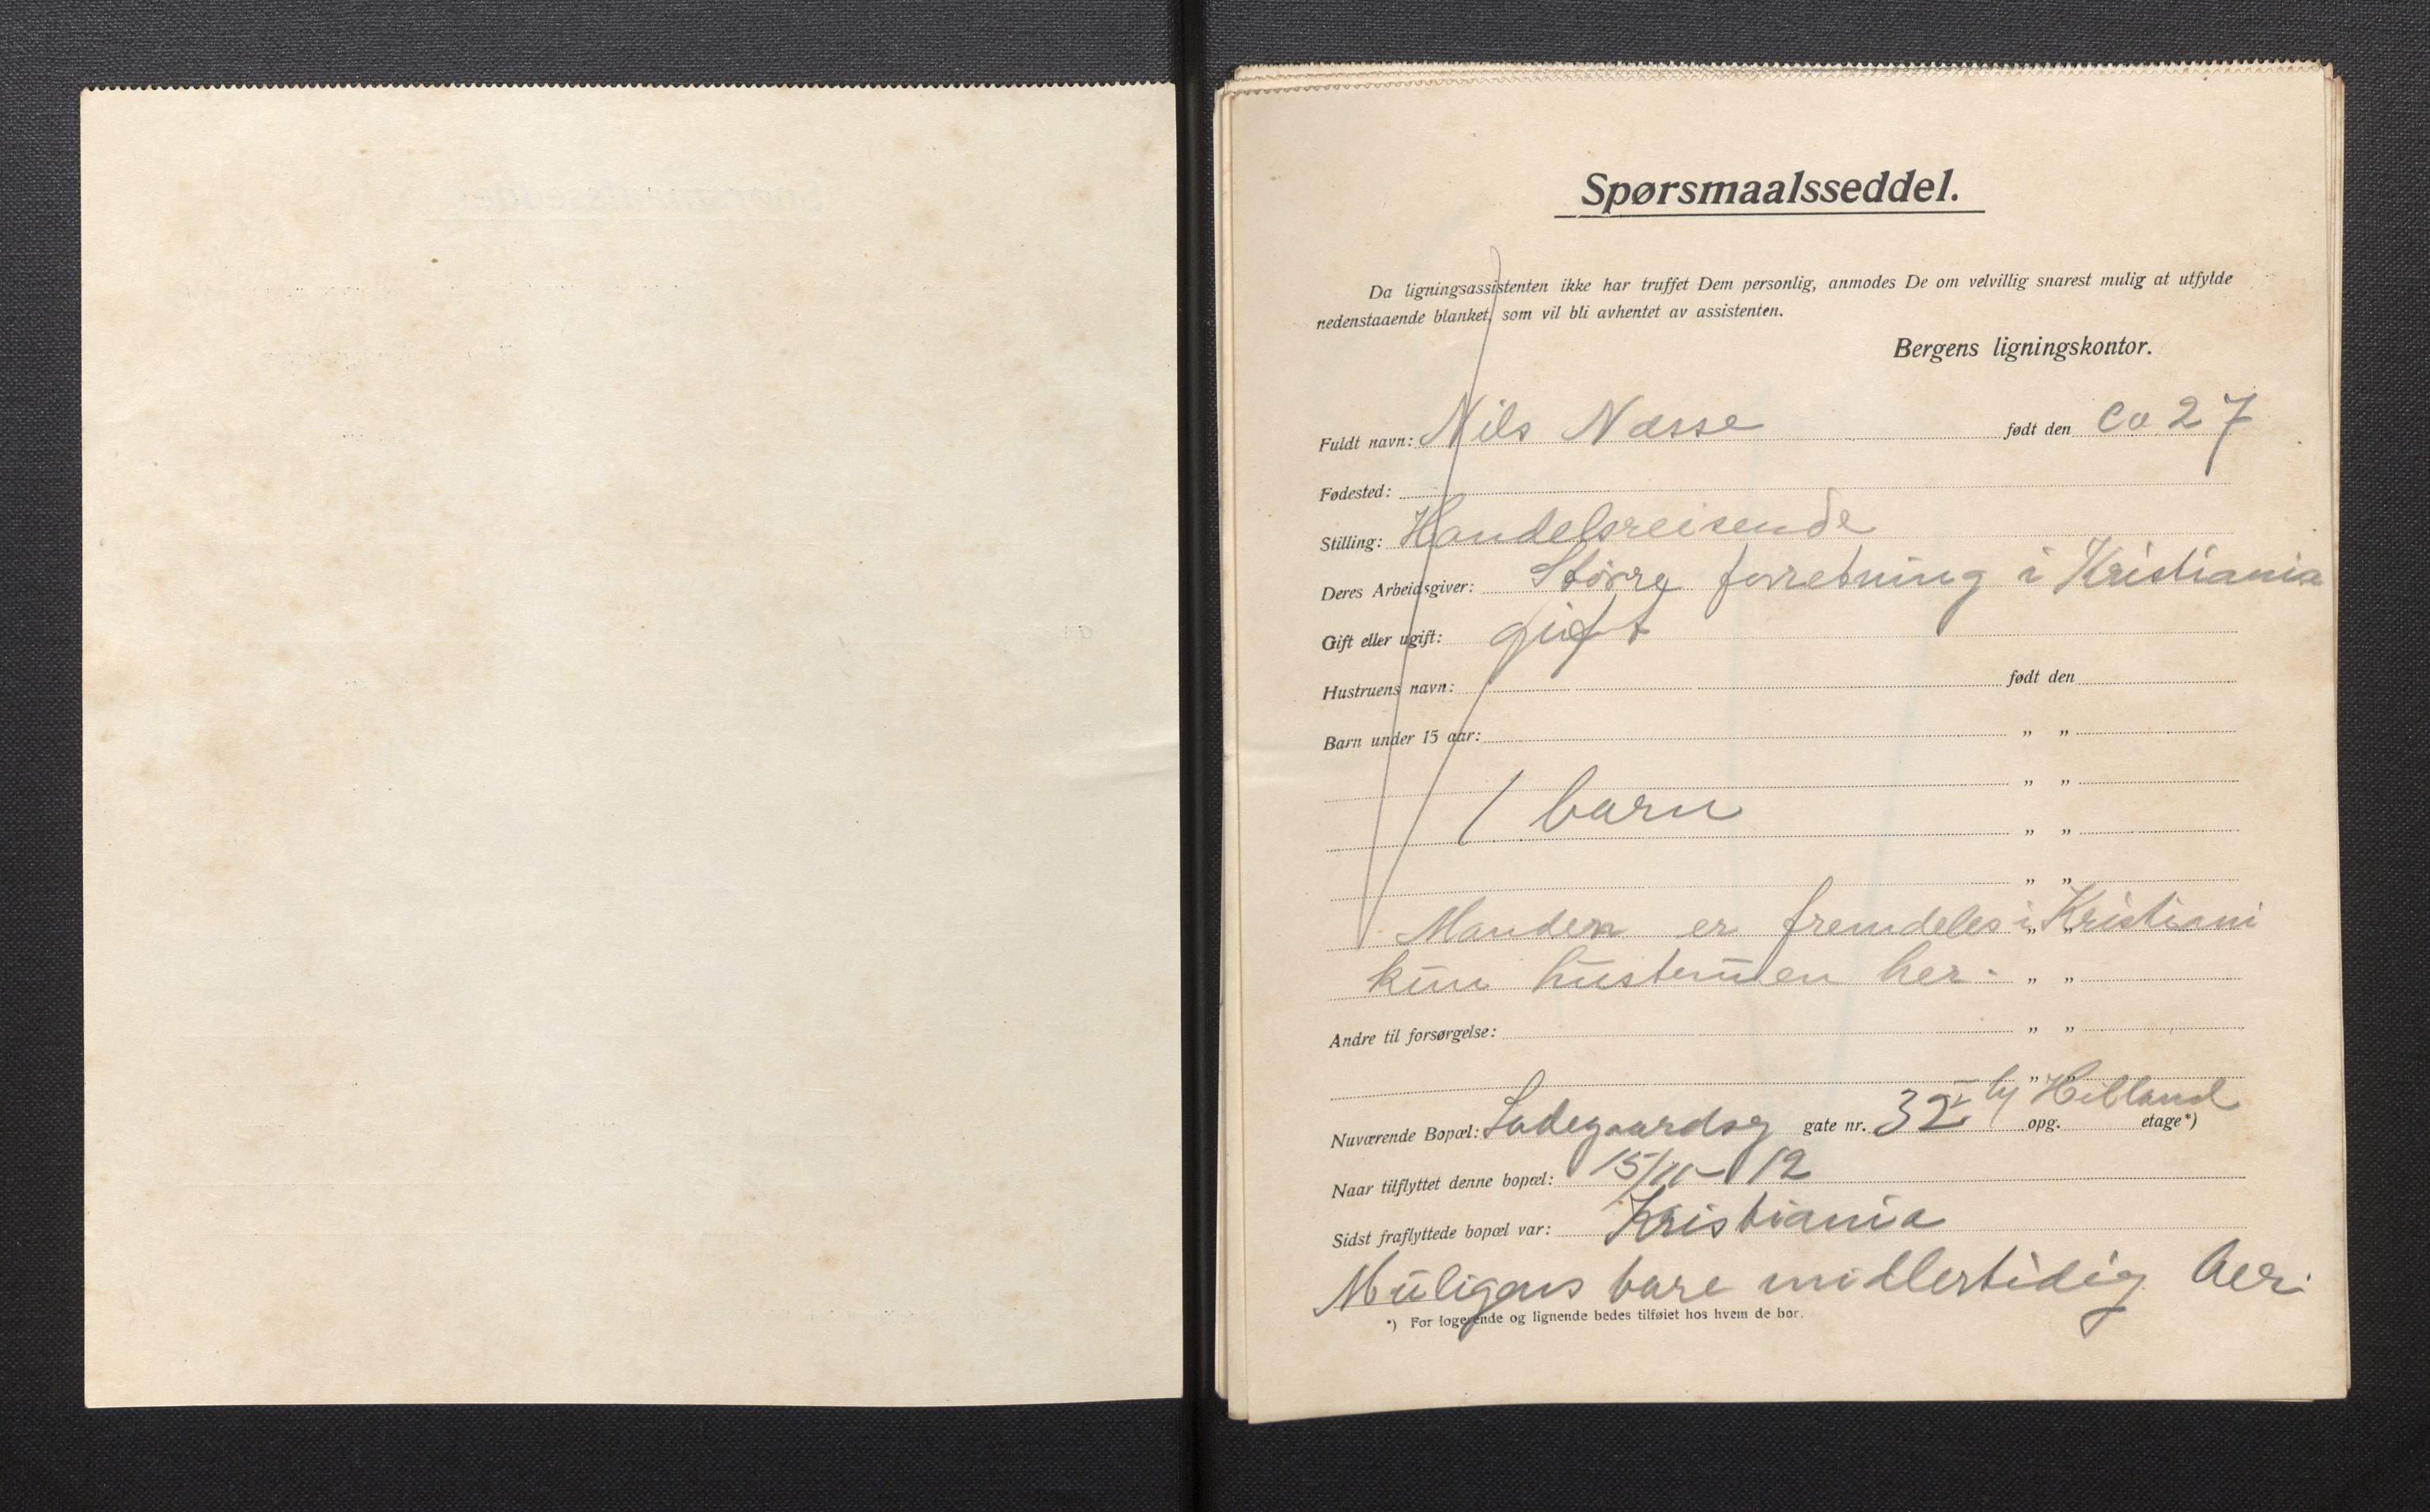 Spørsmaalsseddel.
Da ligningsassistenten ikke har truffet Dem personlig, anmodes De om velvillig snarest mulig at utfylde
nedenstaaende blanket, som vil bli avhentet av assistenten.
Bergens ligningskontor.
Fuldt navn: Nils Næsse født den ca 27
Fødested:
Stilling: Handelsreisende
Deres Arbeidsgiver: Större forretning i Kristiania
Gift eller ugift: gift
Hustruens navn: født den
Barn under 15 aar: „ „
„ „
1 barn „ „
„ „
Manden er fremdeles i Kristiani „ „
kun hustruen her. „ „
Andre til forsørgelse: „ „
„ „
Nuværende Bopæl: Ladegaardsg gate nr. 32 I by Hilland opg. etage*)
Naar tilflyttet denne bopæl: 15/11-12
Sidst fraflyttede bopæl var: Kristiania
Muligens bare midlertidig her.
*) For logerende og lignende bedes tilføiet hos hvem de bor.